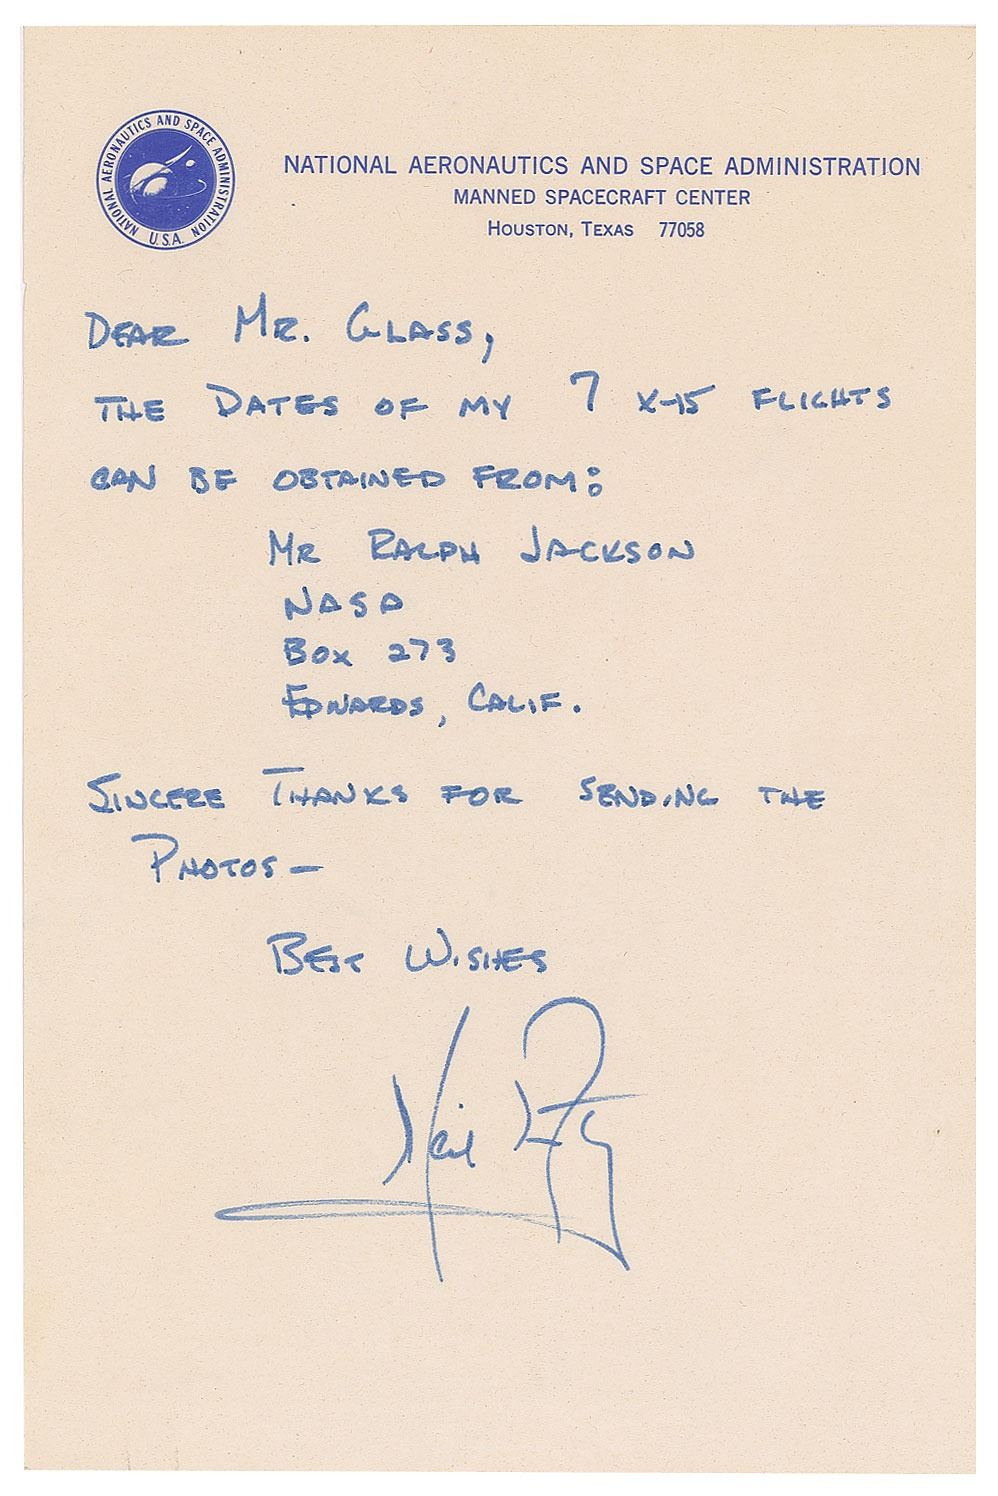 NATIONAL AERONAUTICS AND SPACE ADMINISTRATION
U.S.A.
NATIONAL AERONAUTICS AND SPACE ADMINISTRATION
MANNED SPACECRAFT CENTER
HOUSTON, TEXAS 77058
DEAR MR. GLASS,
THE DATES OF MY 7 X-15 FLIGHTS
CAN BE OBTAINED FROM:
MR RALPH JACKSON
NASA
BOX 273
EDWARDS, CALIF.
SINCERE THANKS FOR SENDING THE
PHOTOS —
BEST WISHES
Neil